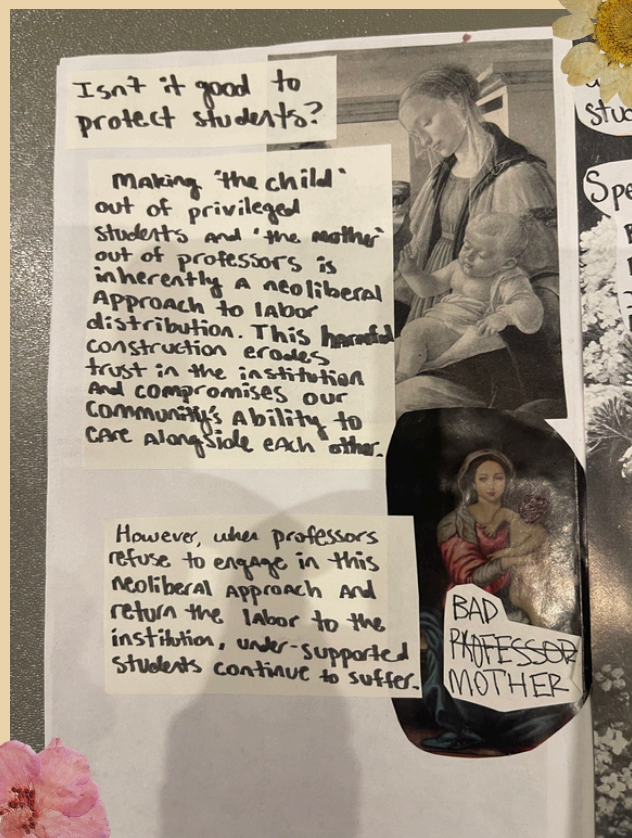 Isn't it good to
protect students?
Making "the child"
out of privileged
students and "the mother"
out of professors is
inherently a neoliberal
Approach to labor
distribution. This harmful
construction erodes
trust in the institution
and compromises our
community's Ability to
care alongside each other.
However, when professors
refuse to engage in this
neoliberal Approach and
return the labor to the
institution, under-supported
students continue to suffer.
BAD
PROFESSOR
MOTHER
Spe